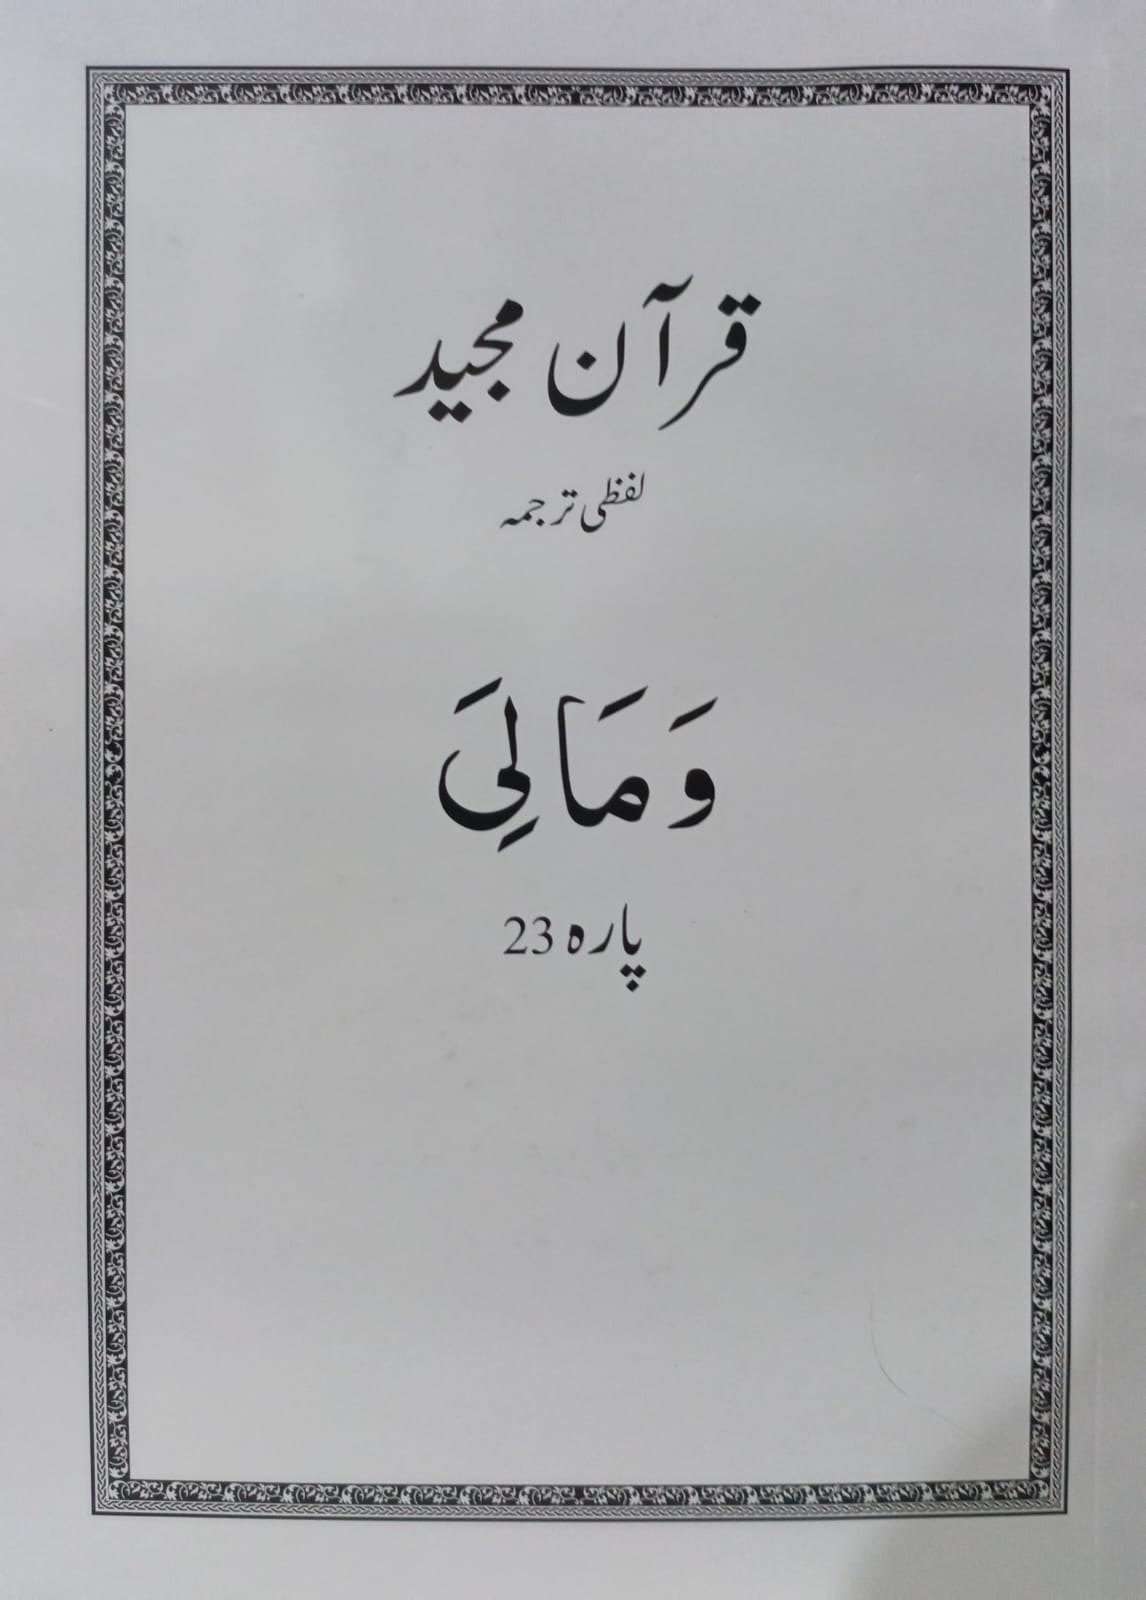 قرآن مجید
لفظی ترجمہ
وَ مَا لِیَ
پارہ 23